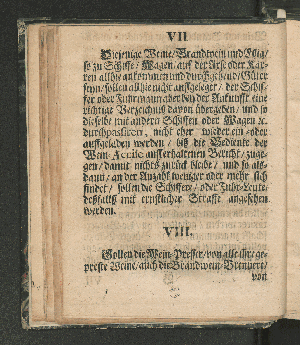 VII.
Diejenige Weine / Brandwein und Essig /
so zu Schiffe / Wagen / auf der Axse oder Kar-
ren allhie ankommen und durchgehend Güter
seyn / sollen allhie nicht auffgeleget / der Schif-
fer oder Fuhrmann aber bey der Ankunfft eine
richtige Verzeichnuß davon übergeben / und so
dieselbe mit andern Schiffen oder Wagen
durchpassiren, nicht eher wieder ein- oder
auffgeladen werden / biß die Bediente der
Wein-Accise auff erhaltenen Bericht / zuge-
gen / damit nichts zurück bleibe / und so als-
dann / an der Anzahl weniger oder mehr sich
findet / sollen die Schiffere / oder Fuhr-Leute /
deßfalls mit ernstlicher Straffe angesehen
werden.
VIII.
Sollen die Wein-Presser / von alle ihre ge-
preste Weine / auch die Brandwein-Brenner /
von